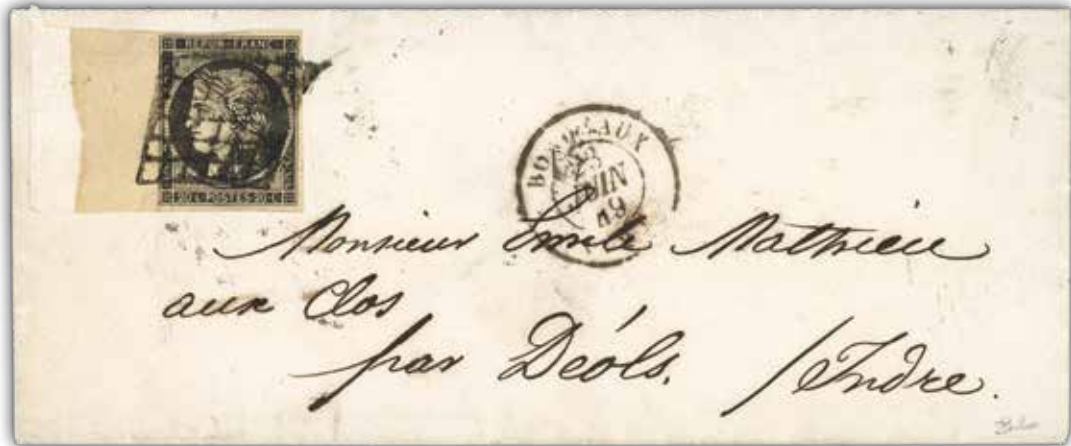 REPUB. FRANC.
20 c. POSTES 20 c.
BORDEAUX
JUIN
49
Monsieur Emile Mathieu
aux Clos
par Déols. /Indre.